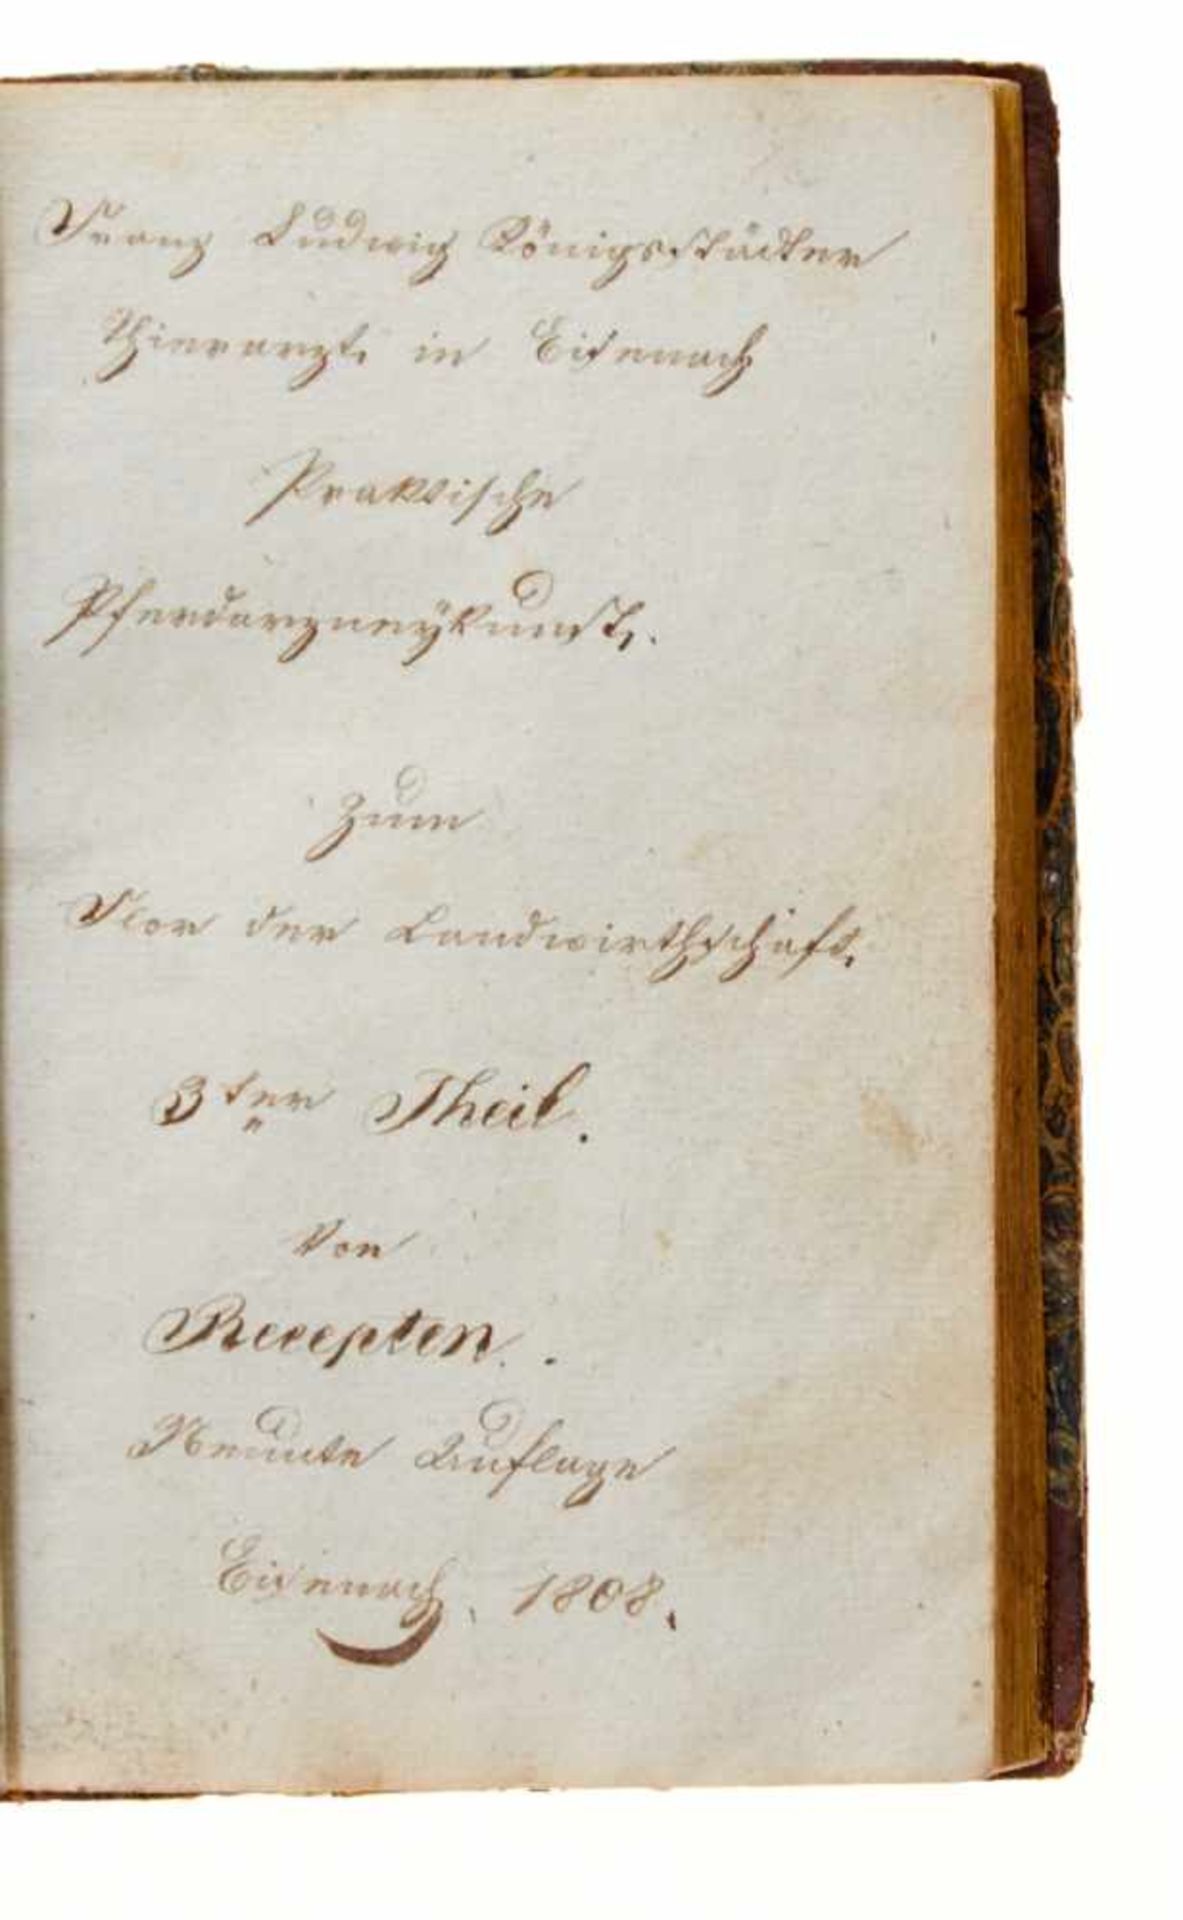 Franz Ludwig Königsstädter
Thierarzt, in Eisenach
Praktische
Pferdarzneÿkunst,.
Zum
Flor der Landwirthschaft,
3ter Theil.
Von
Recepten.
Neunte Auflage
Eisenach, 1808.